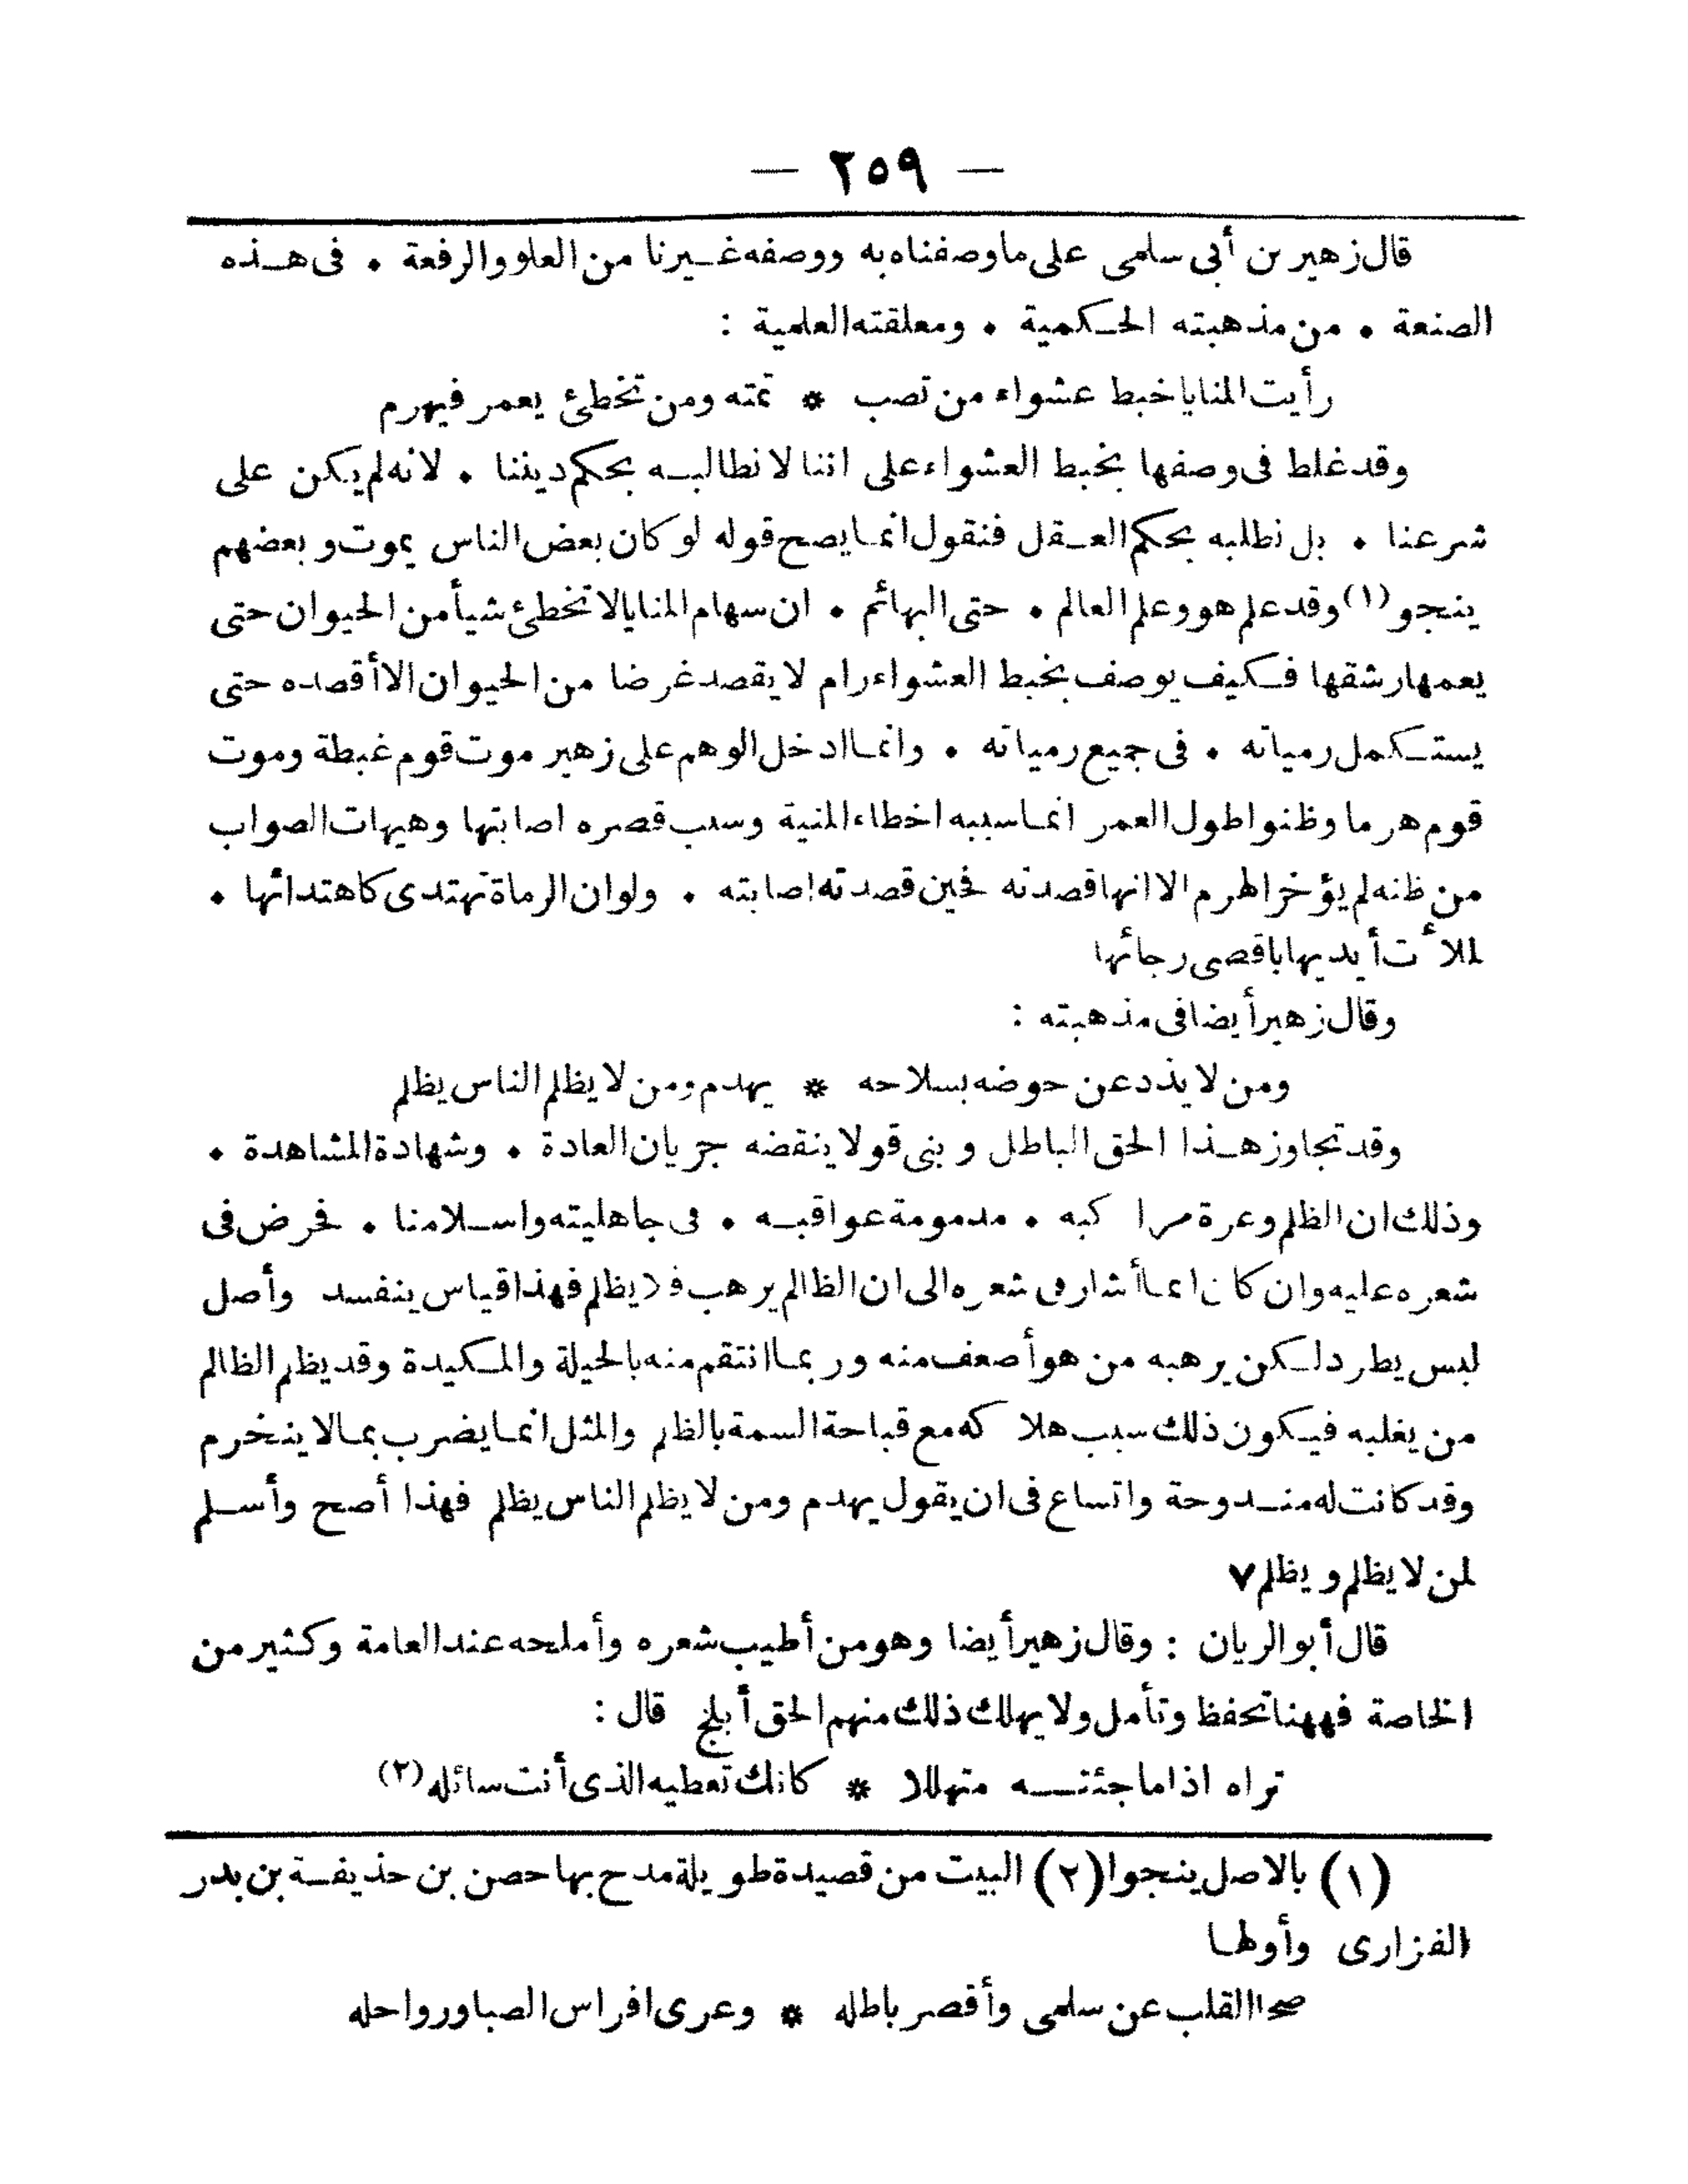 — ٢٥٩ —
قال زهير بن أبي سلمى على ما وصفناه به ووصفه غيرنا من العلو والرفعة . فى هذه
الصنعة . من مذهبته الحكمية . ومعلقته العلمية :
رأيت المنايا خبط عشواء من تصب * تمته ومن تخطئ يعمر فيهرم
وقد غلط فى وصفها بخبط العشواء على اننا لا نطالبه بحكم ديننا . لانه لم يكن على
شرعنا . بل نطلبه بحكم العقل فنقول انما يصح قوله لو كان بعض الناس يموت وبعضهم
ينجو (١) وقد علم هو وعلم العالم . حتى البهائم . ان سهام المنايا لا تخطئ شيأ من الحيوان حتى
يعمها رشقها فكيف يوصف بخبط العشواء رام لا يقصد غرضا من الحيوان الا أقصده حتى
يستكمل رمياته . فى جميع رمياته . وانما ادخل الوهم على زهير موت قوم غبطة وموت
قوم هرما وظنوا طول العمر انما سببه اخطاء المنية وسبب قصره اصابتها وهيهات الصواب
من ظنه لم يؤخر الهرم الا انها قصدته فحين قصدته اصابته . ولو ان الرماة تهتدى كاهتدائها .
لملأت أيديها باقصى رجائها
وقال زهير أيضا فى مذهبته :
ومن لا يذد عن حوضه بسلاحه * يهدم ومن لا يظلم الناس يظلم
وقد تجاوز هذا الحق الباطل وبنى قولا ينقضه جريان العادة . وشهادة المشاهدة .
وذلك ان الظلم وعرة مراكبه . مذمومة عواقبه . فى جاهليته واسلامنا . فحرض فى
شعره عليه وان كان انما أشار فى شعره الى ان الظالم يرهب فلا يظلم فهذا قياس ينفسد وأصل
ليس يطرد لكن يرهبه من هو أضعف منه وربما انتقم منه بالحيلة والمكيدة وقد يظلم الظالم
من يغلبه فيكون ذلك سبب هلاكه مع قباحة السمة بالظلم والمثل انما يضرب بما لا ينخرم
وقد كانت له مندوحة واتساع فى ان يقول يهدم ومن لا يظلم الناس يظلم فهذا أصح وأسلم
لمن لا يظلم ويظلم ٧
قال أبو الريان : وقال زهير أيضا وهو من أطيب شعره وأملحه عند العامة وكثير من
الخاصة فههنا تحفظ وتأمل ولا يهلك ذلك منهم الحق أبلج قال :
تراه اذا ما جئته متهللا * كانك تعطيه الذى أنت سائله (٢)
(١) بالاصل ينجوا (٢) البيت من قصيدة طويلة مدح بها حصن بن حذيفة بن بدر
الفزارى وأولها
صحا القلب عن سلمى وأقصر باطله * وعرى افراس الصبا ورواحله